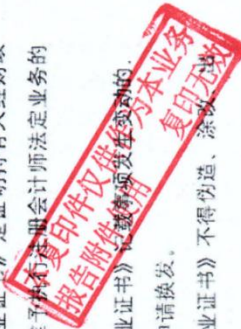 业证书》是证明持有人经财政
准予执行注册会计师法定业务的
业证书》记载事项发生变动的,
申请换发。
业证书》不得伪造、涂改、出
此复印件仅供作为本业务
报告附件使用
复印无效